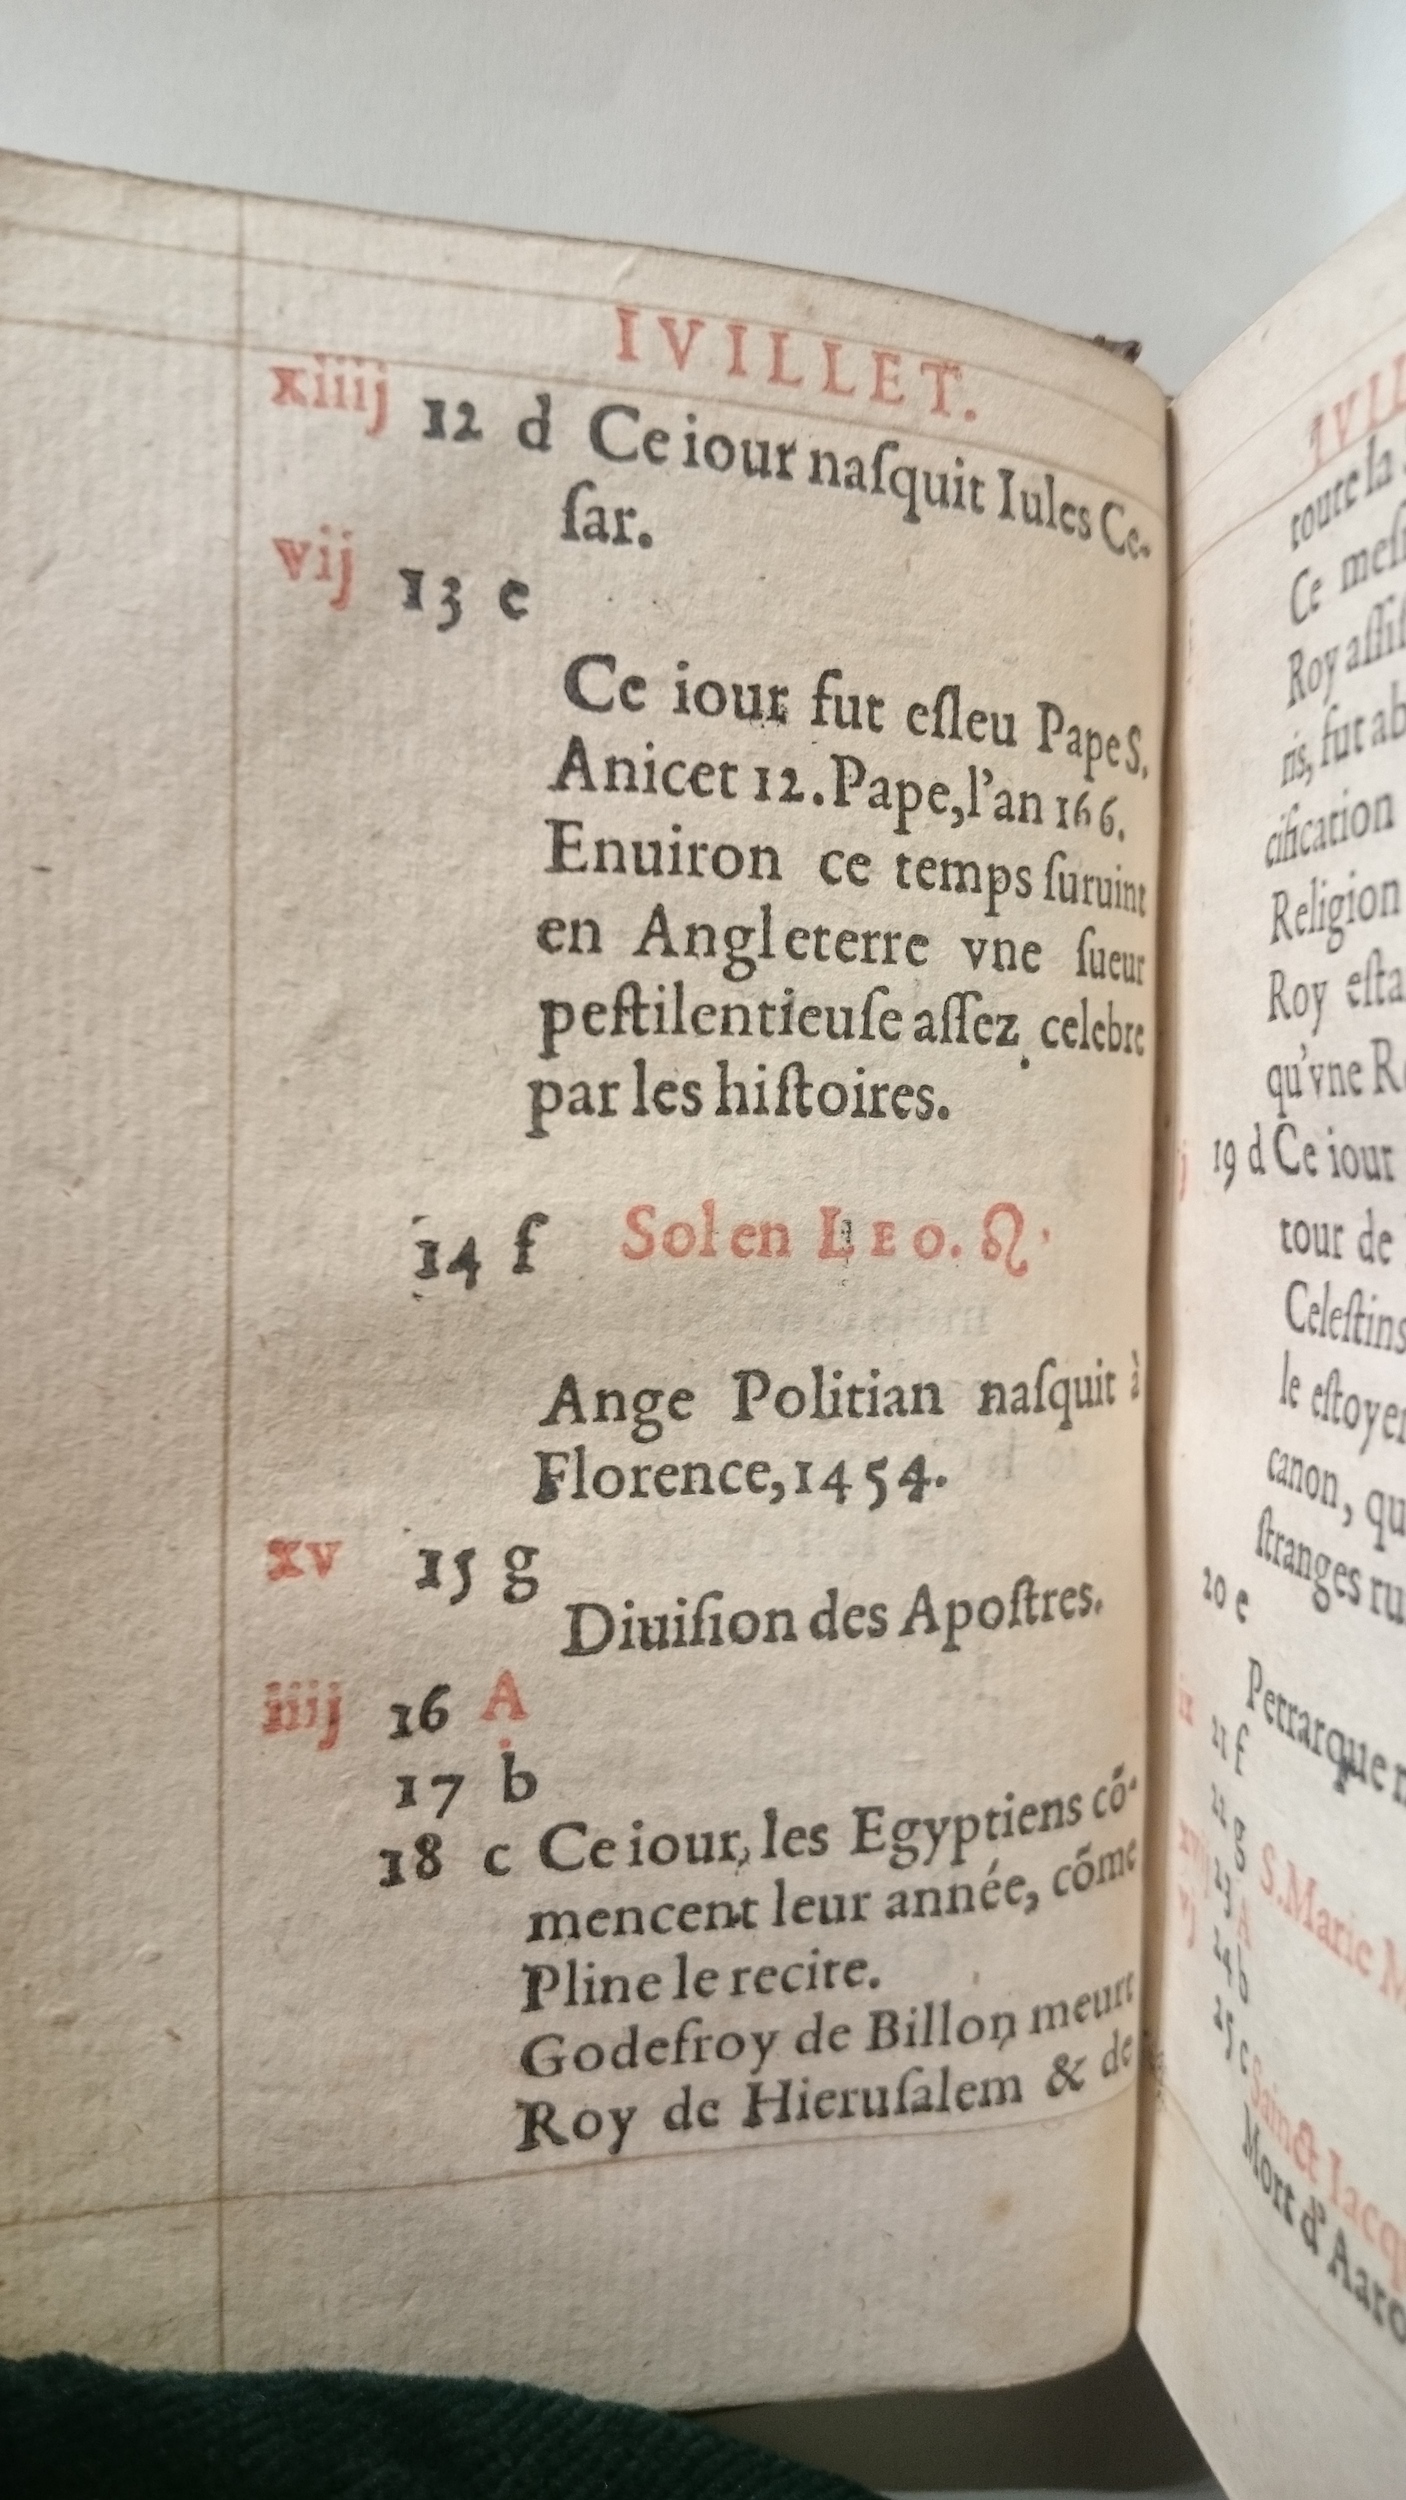 IVILLET.
xiiij 12 d Ce iour naſquit Iules Ce-
ſar.
vij 13 e
Ce iour fut eſleu Pape S.
Anicet 12. Pape, l'an 166.
Enuiron ce temps ſuruint
en Angleterre vne ſueur
peſtilentieuſe aſſez celebre
par les hiſtoires.
14 f Sol en LEO. ♌
Ange Politian naſquit à
Florence, 1454.
xv 15 g
Diuiſion des Apoſtres.
iiij 16 A
17 b
18 c Ce iour, les Egyptiens cõ-
mencent leur année, cõme
Pline le recite.
Godefroy de Billon meurt
Roy de Hieruſalem & de
IVIL
toute la
Ce meſ
Roy aſſiſ
ris, fut ab
cification
Religion
Roy eſta
qu'vne R
j 19 d Ce iour
tour de
Celeſtins
le eſtoyen
canon, qu
ſtranges ru
20 e
Petrarque
ix 21 f
22 g S. Marie M
23 A
vj 24 b
25 c Sainct Iacq
Mort d'Aaro